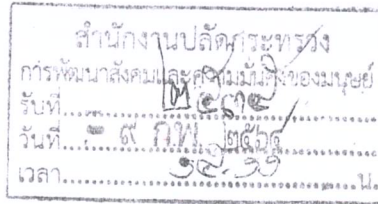 สำนักงานปลัดกระทรวง
การพัฒนาสังคมและความมั่นคงของมนุษย์
รับที่
วันที่ - ๙ ก.พ. ๒๕๖๔
เวลา น.